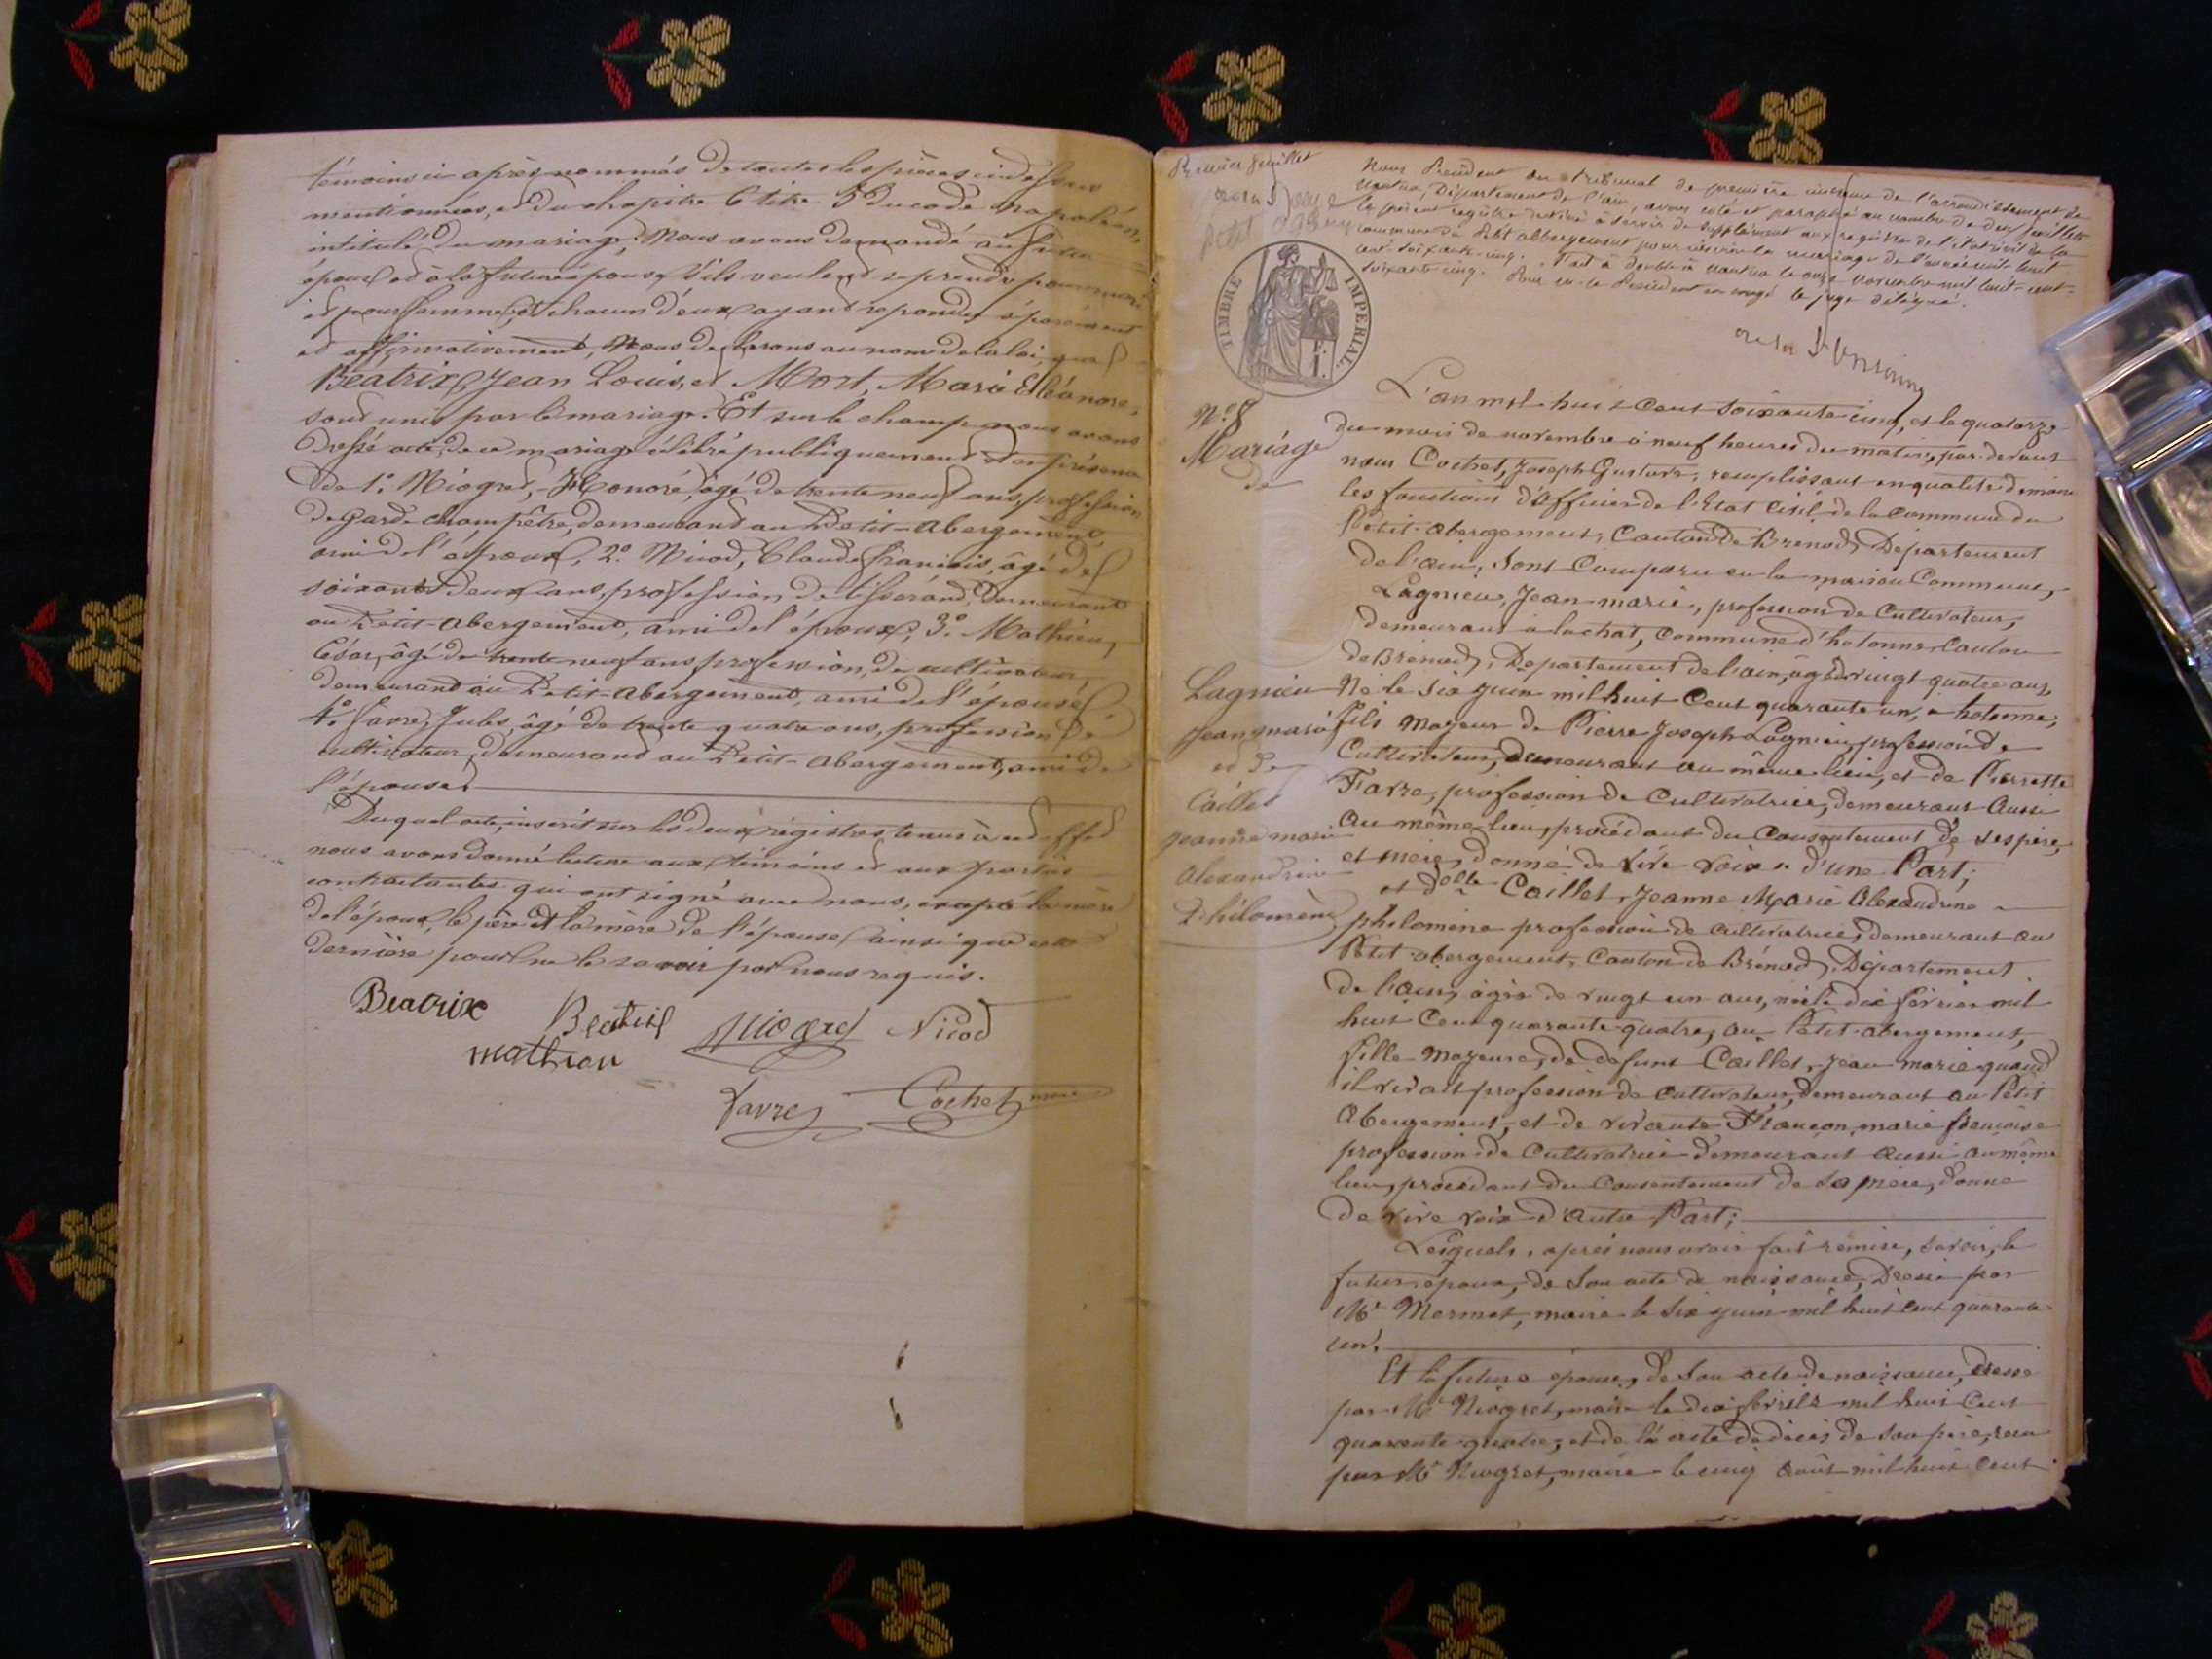 témoins ci après nommés de toutes les pièces ci dessus
mentionnées, et du chapitre 6 titre 5 du code napoléon,
intitulé du mariage. Nous avons demandé au futur
époux et à la future épouse s'ils veulent se prendre pour mari
et pour femme, et chacun d'eux ayant répondu séparément
et affirmativement, Nous déclarons au nom de la loi, que
Beatrix, Jean Louis, et Mort, Marie Eléonore,
sont unis par le mariage. Et sur le champ nous avons
dressé acte de ce mariage célébré publiquement en présence
de 1.º Niogret, Honoré, âgé de trente neuf ans, profession
de garde champêtre, demeurant au Petit-abergement,
ami de l'époux, 2.º Nicod, Claude François, âgé de
soixante deux ans, profession de tisserand, demeurant
au Petit-abergement, ami de l'époux, 3.º Mathieu,
César, âgé de trente neuf ans profession, de cultivateur,
demeurant au Petit-abergement, ami de l'épouse,
4.º Favre, Jules, âgé de trente quatre ans, profession de
cultivateur, demeurant au Petit-abergement, ami de
l'épouse.
Duquel acte, inscrit sur les deux registres tenus à cet effet
nous avons donné lecture aux témoins et aux parties
contractantes qui ont signé avec nous, excepté la mère
de l'époux, le père et la mère de l'épouse ainsi que cette
dernière pour ne le savoir par nous requis.
Beatrix Beatrix Niogret Nicod
mathieu
Favre Cochet maire
Premier feuillet
Petit
Nous Président du tribunal de première instance de l'arrondissement de
Nantua, Département de l'ain, avons coté et paraphé au nombre de deux feuillets
le présent registre destiné à servir de supplément aux registres de l'état civil de la
commune du Petit abbergement pour inscrire les mariages de l'année mil huit
cent soixante-cinq. Fait à double à Nantua le onze novembre mil huit-cent-
soixante cinq. Pour M. le Président en congé le juge délégué.
TIMBRE IMPERIAL
Nº 8
Mariage
de
Lagnieu
Jean marie
et de
Caillet
Jeanne marie
alexandrine
Philomène
L'an mil huit cent soixante cinq, et le quatorze
du mois de novembre à neuf heures du matin, par devant
nous Cochet, Joseph Gustave, remplissant en qualité de maire
les fonctions d'officier de l'Etat Civil de la Commune du
Petit-abergement, Canton de Brénod, Département
de l'ain, Sont Comparu en la maison Commune,
Lagnieu, Jean marie, profession de Cultivateur,
demeurant à lachat, Commune d'hotonne, Canton
de Brénod, Département de l'ain, âgé de vingt quatre ans,
Né le Six juin mil huit Cent quarante un, à hotonne,
fils majeur de Pierre Joseph Lagnieu, profession de
Cultivateur, demeurant au même lieu, et de Pierrette
Favre, profession de Cultivatrice, demeurant Aussi
Au même lieu, procédant du Consentement de ses père,
et mère, donné de Vive Voix d'une Part;
et delle Caillet, Jeanne Marie Alexandrine
philomène profession de Cultivatrice, demeurant au
Petit-abergement, Canton de Brénod, Département
de l'ain, âgée de vingt un ans, née le dix février mil
huit Cent quarante quatre, au Petit-abergement,
fille Majeure, de défunt Caillet, Jean marie quand
il vivait profession de Cultivateur, demeurant au Petit
Abergement, et de vivante Françon, marie françoise
profession de Cultivatrice demeurant Aussi au même
lieu, procédant du Consentement de Sa mère, donné
de vive voix d'Autre Part;
Lesquels, après nous avoir fait remise, Savoir, le
futur époux, de Son acte de naissance, Dressé par
Mr Mermet, maire le Six juin mil huit cent quarante
un.
Et la future épouse, de Son acte de naissance, dressé
par Mr Niogret, maire le dix février mil huit Cent
quarante quatre, et de l'acte de décès de Son père, reçu
par Mr Niogret, maire le cinq Août mil huit Cent